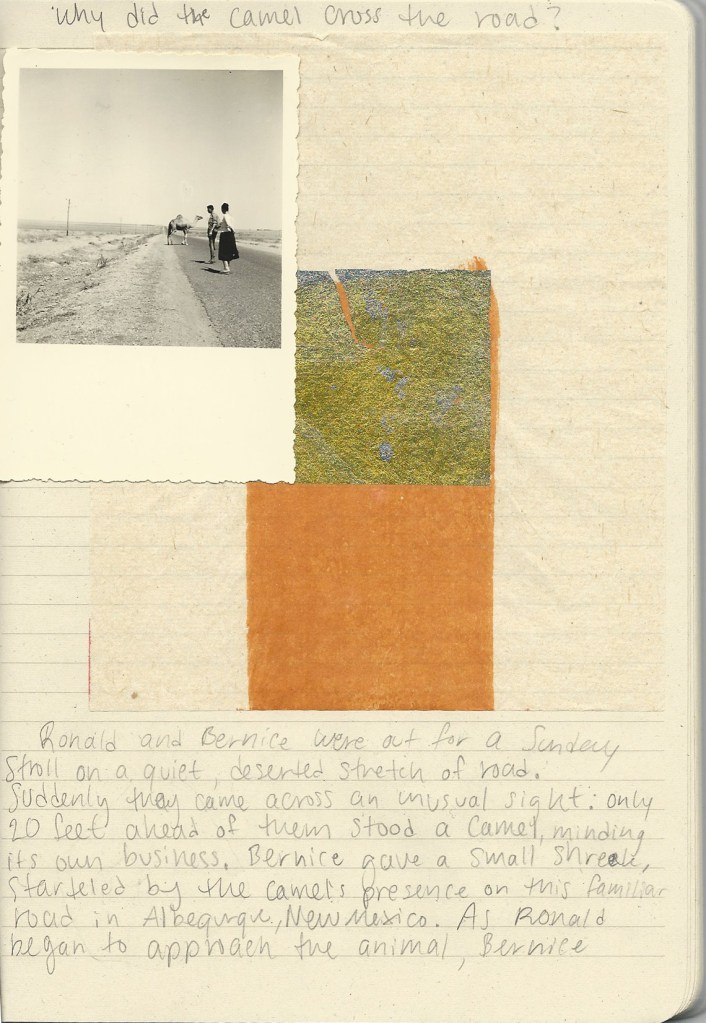 Why did the camel cross the road?
Ronald and Bernice were out for a Sunday
Stroll on a quiet, deserted stretch of road.
Suddenly they came across an unusual sight: only
20 feet ahead of them stood a camel, minding
its own business. Bernice gave a small shreek,
starteled by the camel's presence on this familiar
road in Albequrque, New Mexico. As Ronald
began to approach the animal, Bernice